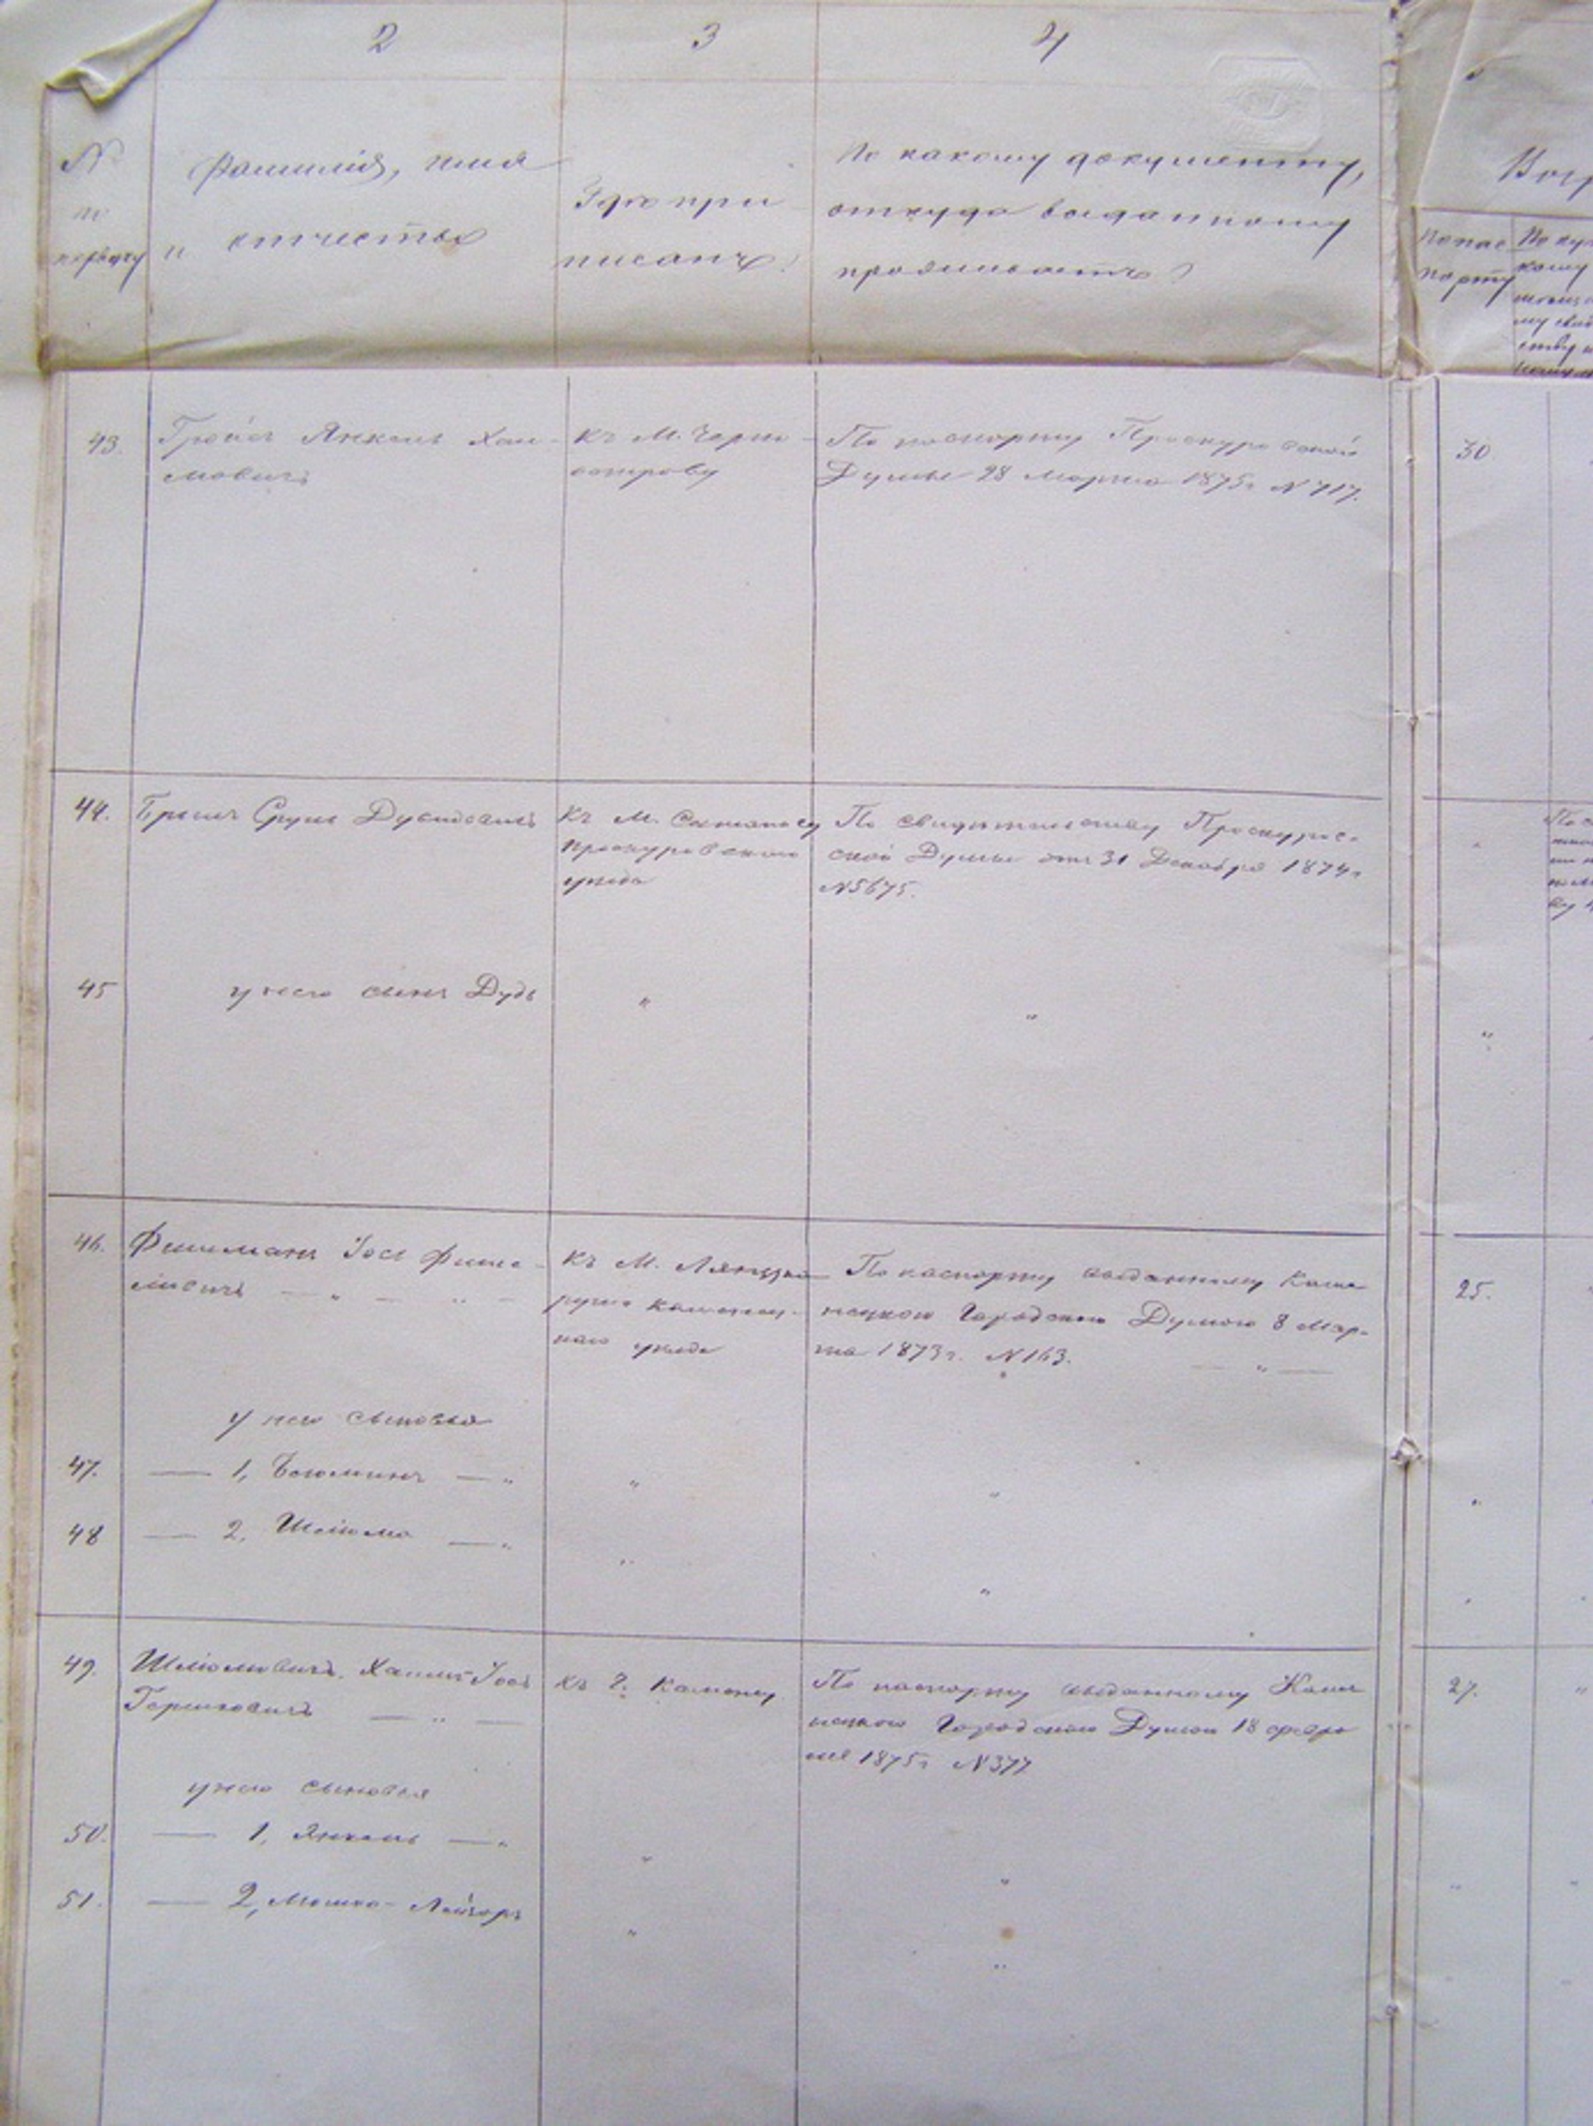 2
3
4
№
по
порядку
Фамилія, имя
и отчество
Гдѣ при
писанъ?
По какому документу,
откуда выданному
проживаетъ?
По пас
порту
43.
Янкель Хаи-
мовичъ
Къ М. Черно-
острову
По паспорту Проскуровской
Думы 28 Марта 1875г. № 717.
30
44.
Сруль Дувидовичъ
Къ М.
Проскуровскаго
уѣзда
По свидѣтельству Проскуров-
ской Думы отъ 31 Декабря 1874г.
№ 5675.
45
у него сынъ Дудь
"
"
"
46.
Фишманъ Іось Фише-
лѣвичъ — " — "
Къ М. Лянцко-
руню Каменец-
каго уѣзда
По паспорту выданному Каме
нецкою Городскою Думою 8 Мар-
та 1873г. № 163. — " —
25.
у него сыновья
47.
— 1, Беюминъ — "
"
"
"
48
— 2, Шлёма — "
"
"
49.
Шлёмовичъ Хаимъ-Іось
Гершковичъ — " —
Къ г. Каменцу
По паспорту выданному Каме
нецкою Городскою Думою 18 февра
ля 1875г. № 377
27.
"
у него сыновья
50.
— 1, Янкель — "
"
"
51.
— 2, Мошко-Лейзоръ
"
"